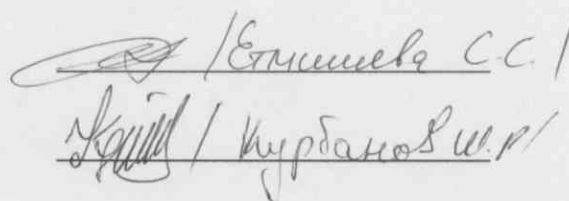 /Етмишева С.С./
/Курбанов Ш.Р/